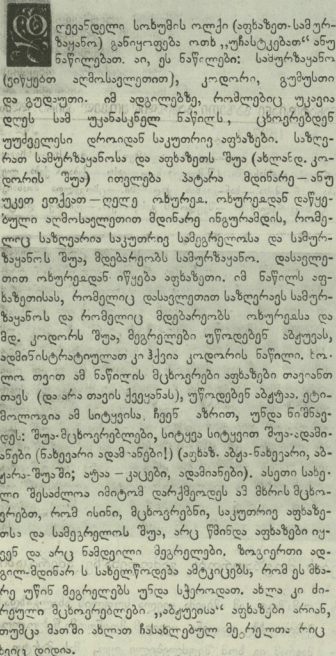 დღევანდელი სოხუმის ოლქი (აფხაზეთ-სამურ-
ზაყანო) განიყოფება ოთხ „უჩასტკებათ“ ანუ
ნაწილებათ. აი, ეს ნაწილები: სამურზაყანო
(ვიწყებთ აღმოსავლეთით), კოდორი, გუმუსთი
და გუდაუთი. იმ ადგილებზე, რომლებიც უკავია
დღეს სამ უკანასკნელ ნაწილს, ცხოვრებდენ
უუძველესი დროიდან საკუთრივ აფხაზები. საზღვ-
რათ სამურზაყანოსა და აფხაზეთს შუა (ახლანდ. კო-
დორის შუა) ითვლება პატარა მდინარე — ანუ
უკეთ ვთქვათ — ღელე ოხურეჲ. ოხურეჲდან დაწყე-
ბული აღმოსავლეთით მდინარე ინგურამდის, რომე-
ლიც საზღვარია საკუთრივ სამეგრელოსა და სამურ-
ზაყანოს შუა, მდებარეობს სამურზაყანო. დასავლე-
თით ოხურეჲდან იწყება აფხაზეთი. იმ ნაწილს აფ-
ხაზეთისას, რომელიც დასავლეთით საზღვრავს სამურ-
ზაყანოს და რომელიც მდებარეობს ოხურეჲსა და
მდ. კოდორს შუა, მეგრელები უწოდებენ აბჟუვას,
ადმინისტრატიულათ კი ჰქვია კოდორის ნაწილი. ხო-
ლო თვით ამ ნაწილის მცხოვრები აფხაზები თავიანთ
თავს (და არა თავის ქვეყანას), უწოდებენ აბჟუაა. ეტი-
მოლოგია ამ სიტყვისა ჩვენ აზრით, უნდა ნიშნავ-
დეს: შუა-მცხოვრებლები, სიტყვა სიტყვით შუა-ადამი-
ანები (ნახევარი ადამიანები!) (აფხაზ. აბჟა-ნახევარი, აბ-
ჟარა-შუაში; აჟაა — კაცები, ადამიანები). ასეთი სახე-
ლი შესაძლოა იმიტომ დარქმეოდეს ამ მხრის მცხო-
ვრებთ, რომ ისინი, მცხოვრებნი, საკუთრივ აფხაზე-
თსა და სამეგრელოს შუა, არც წმინდა აფხაზები იყ-
ვენ და არც ნამდვილი მეგრელები. ზოგიერთი ად-
გილ-მდინარის სახელწოდება ამტკიცებს, რომ ეს მხა-
რე უწინ მეგრელებს უნდა სჭეროდათ. ახლა კი ძი-
რეული მცხოვრებლები „აბჟუვისა“ აფხაზები არიან,
თუმცა მათში ახლათ ჩასახლებულ მეგრელთა რიც
ხვიც დიდია.